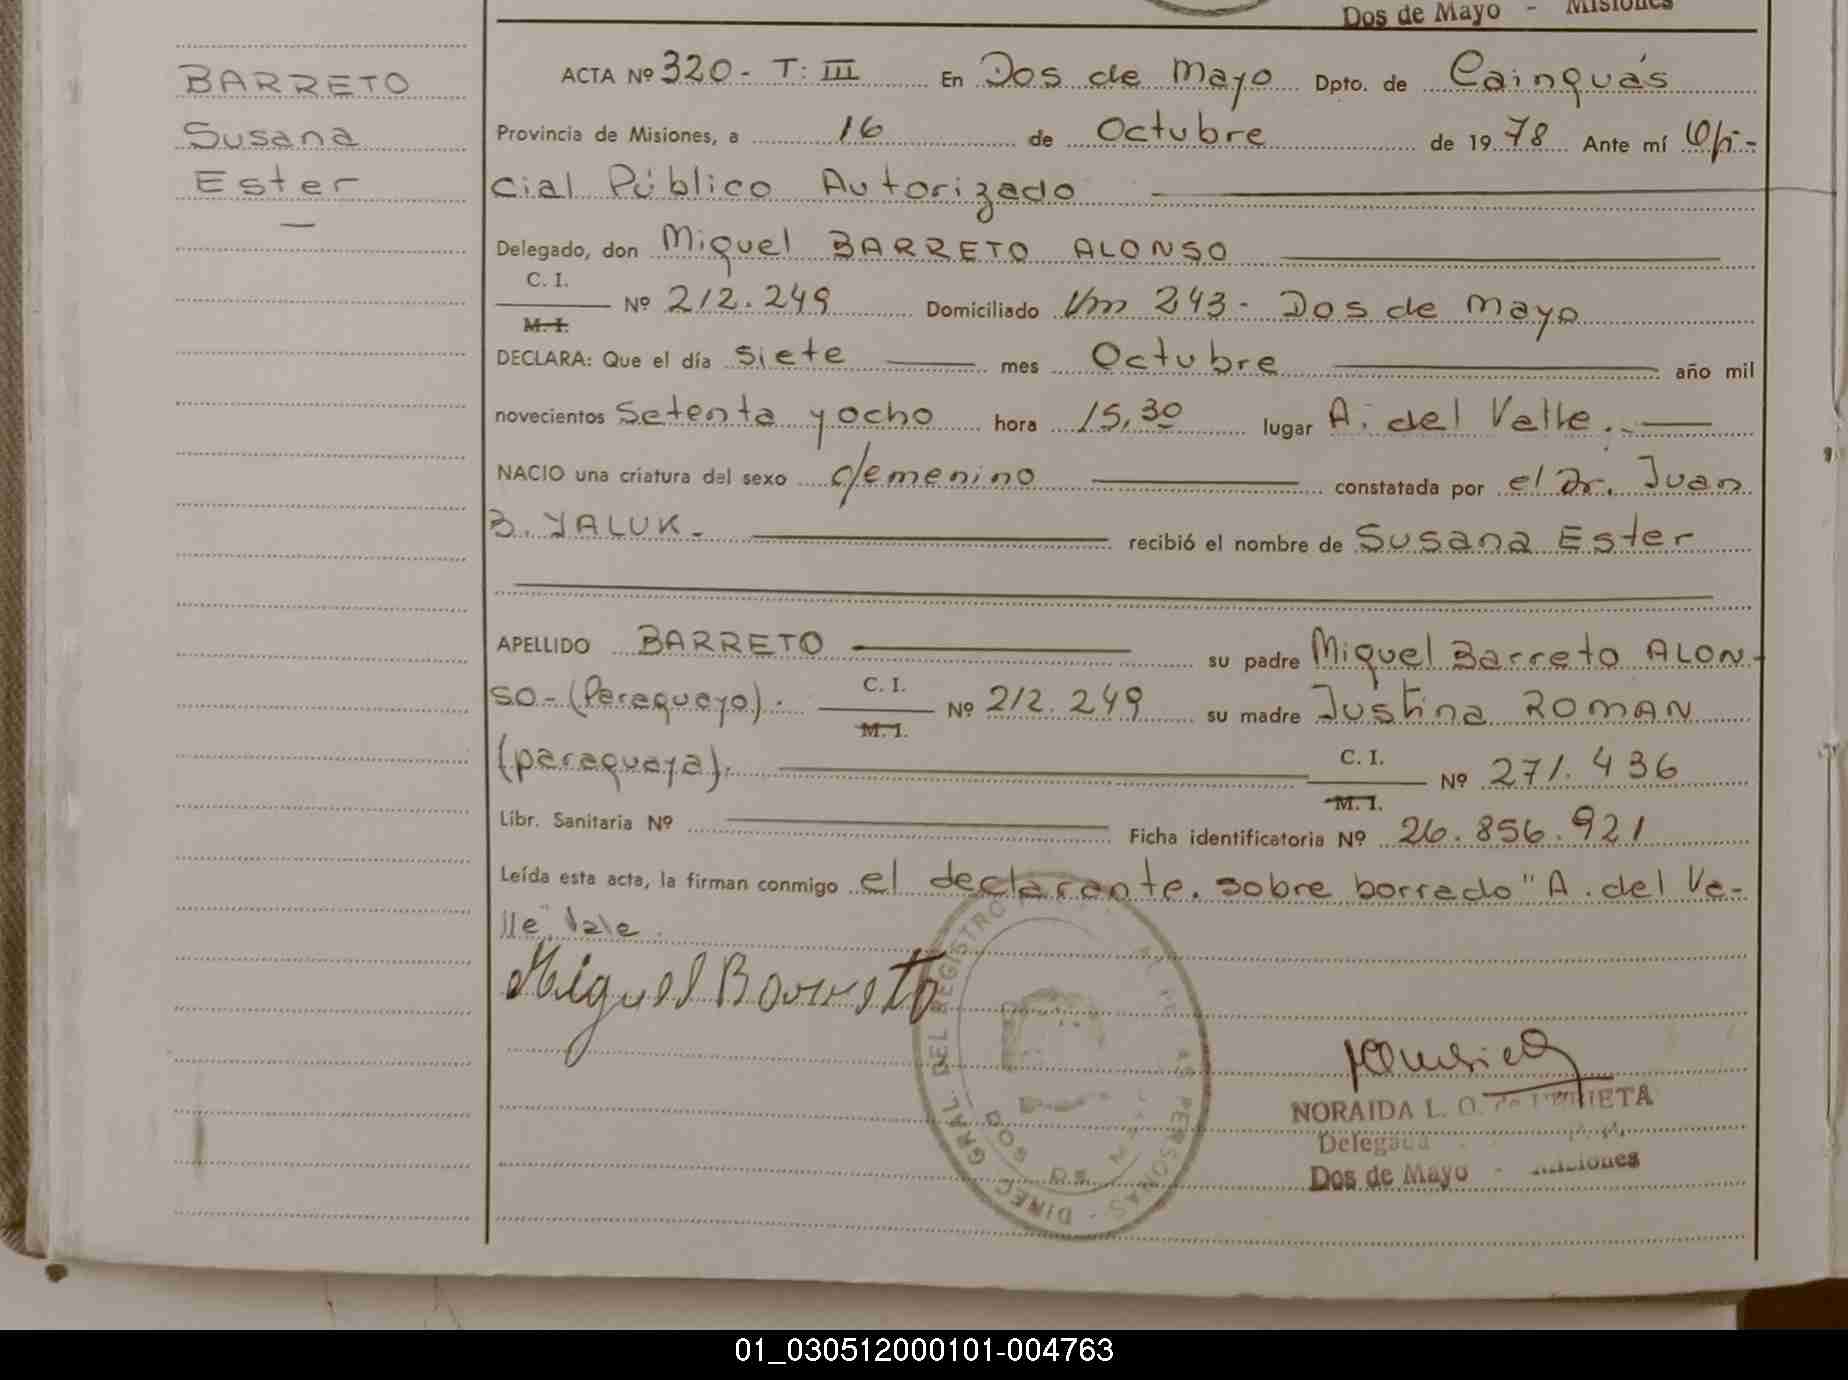 Dos de Mayo - Misiones
BARRETO
Susana
Ester
ACTA Nº 320 - T: III En Dos de Mayo Dpto. de Cainguás
Provincia de Misiones, a 16 de Octubre de 1978 Ante mí Ofi-
cial Público Autorizado
Delegado, don Miguel BARRETO ALONSO
C. I.
M. I. Nº 212.249 Domiciliado Km 243 - Dos de Mayo
DECLARA: Que el día siete mes Octubre año mil
novecientos setenta y ocho hora 15,30 lugar A. del Valle.
NACIO una criatura del sexo femenino constatada por el Dr. Juan
B. YALUK - recibió el nombre de Susana Ester
APELLIDO BARRETO su padre Miguel Barreto ALON-
SO - (Paraguayo). C. I. M. I. Nº 212.249 su madre Justina ROMAN
(paraguaya). C. I. M. I. Nº 271.436
Libr. Sanitaria Nº Ficha identificatoria Nº 26.856.921
Leída esta acta, la firman conmigo el declarante. sobre borrado "A. del Va-
lle" Vale.
Miguel Barreto
DIREC. GRAL. DEL REGISTRO AS PERSONAS - DOS DE
NORAIDA L. O.
Delegada
Dos de Mayo - Misiones
01_030512000101-004763